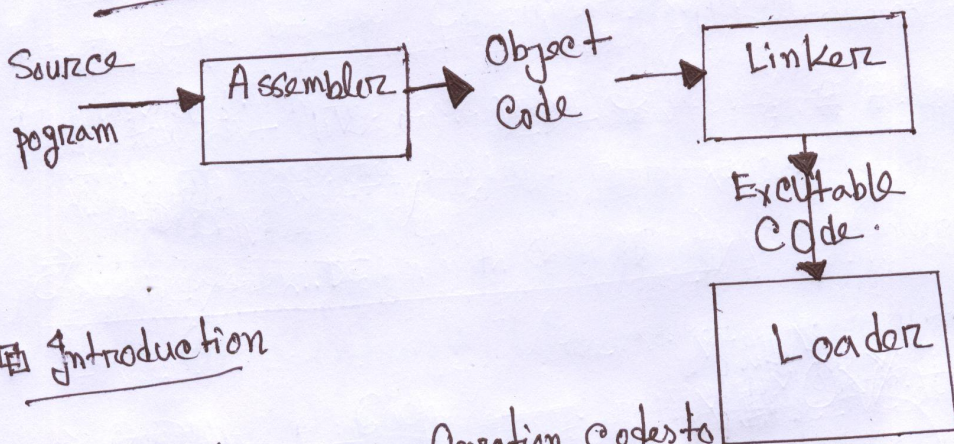 Source
pogram
Assembler
Object
Code
Linker
Excutable
Code.
Loader
Introduction
Operation Codes to